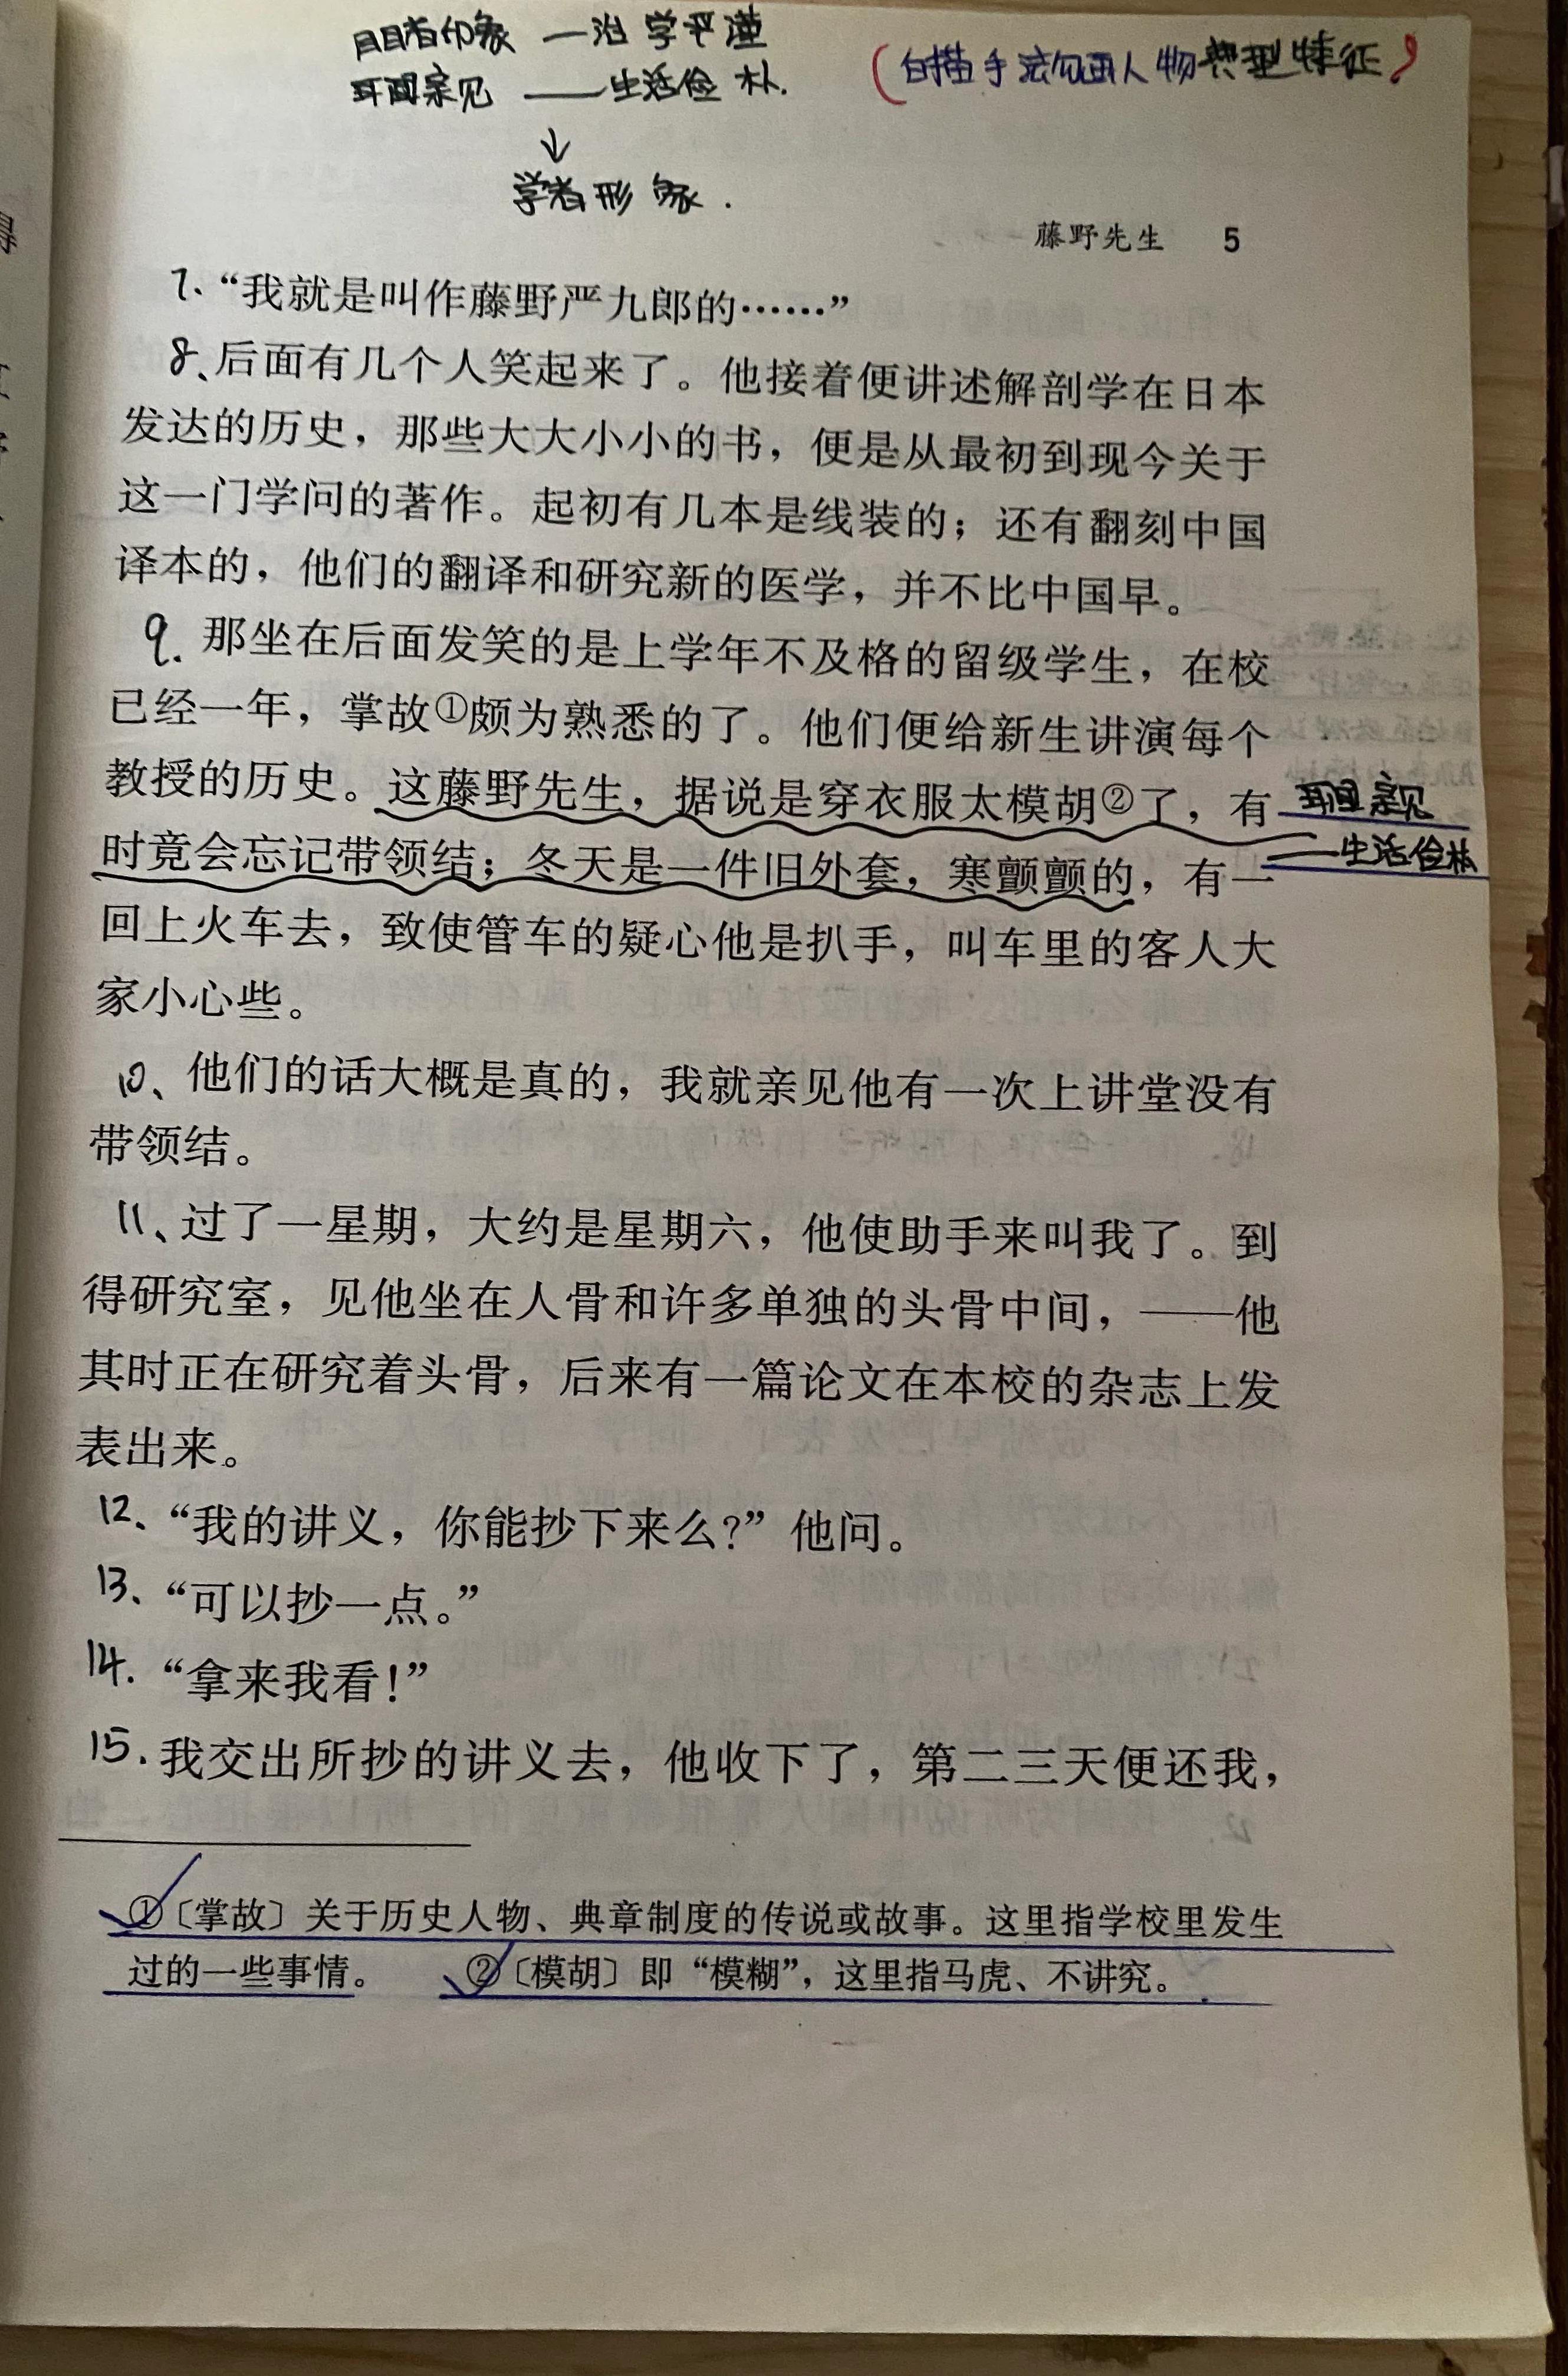 印象 — 治学严谨
耳闻亲见 —— 生活俭朴.
(白描手法勾画人物典型特征)
↓
学者形象.
藤野先生 5
7、“我就是叫作藤野严九郎的……”
8、后面有几个人笑起来了。他接着便讲述解剖学在日本
发达的历史，那些大大小小的书，便是从最初到现今关于
这一门学问的著作。起初有几本是线装的；还有翻刻中国
译本的，他们的翻译和研究新的医学，并不比中国早。
9. 那坐在后面发笑的是上学年不及格的留级学生，在校
已经一年，掌故①颇为熟悉的了。他们便给新生讲演每个
教授的历史。这藤野先生，据说是穿衣服太模胡②了，有
时竟会忘记带领结；冬天是一件旧外套，寒颤颤的，有一
回上火车去，致使管车的疑心他是扒手，叫车里的客人大
家小心些。
耳闻亲见
——生活俭朴
10、他们的话大概是真的，我就亲见他有一次上讲堂没有
带领结。
11、过了一星期，大约是星期六，他使助手来叫我了。到
得研究室，见他坐在人骨和许多单独的头骨中间，——他
其时正在研究着头骨，后来有一篇论文在本校的杂志上发
表出来。
12、“我的讲义，你能抄下来么？”他问。
13、“可以抄一点。”
14. “拿来我看！”
15. 我交出所抄的讲义去，他收下了，第二三天便还我，
①〔掌故〕关于历史人物、典章制度的传说或故事。这里指学校里发生
过的一些事情。 ②〔模胡〕即“模糊”，这里指马虎、不讲究。